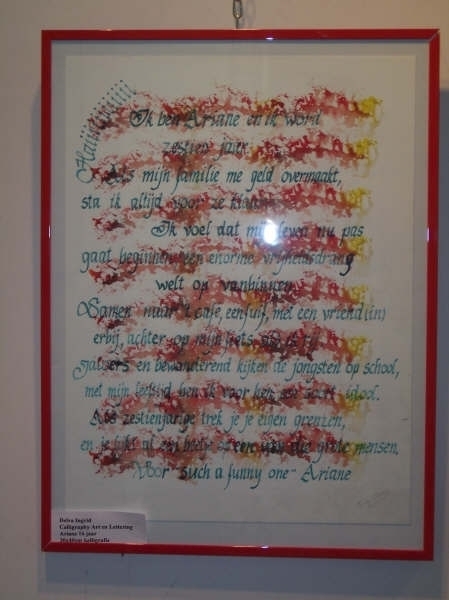 Haiiiiiiiiiiii
Ik ben Ariane en ik word
zestien jaar.
Als mijn familie me geld overmaakt,
sta ik altijd voor ze klaar.
Ik voel dat mijn leven nu pas
gaat beginnen, een enorme vrijheidsdrang
welt op vanbinnen.
Samen naar 't café, een fuif, met een vriend(in)
erbij, achter op mijn fiets
Jaloers en bewonderend kijken de jongsten op school,
met mijn leeftijd ben ik voor hen een soort idool.
Als zestienjarige trek je je eigen grenzen,
en je lijkt al een beetje op een van die grote mensen.
Voor such a funny one - Ariane
Delva Ingrid
Calligraphy Art en Lettering
Ariane 16 jaar
kalligrafie